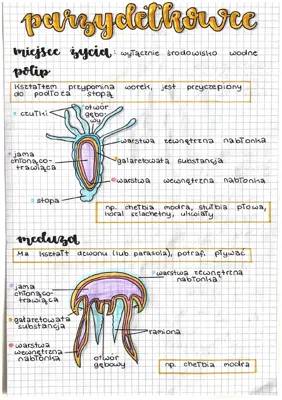 parzydełkowce
miejsce życia: wyłącznie środowisko wodne
polip
kształtem przypomina worek, jest przyczepiony
do podłoża stopą
czułki
otwór
gębo-
wy
warstwa zewnętrzna nabłonka
jama
chłonąco-
trawiąca
galaretowata substancja
warstwa wewnętrzna nabłonka
stopa
np. chełbia modra, stułbia płowa,
koral szlachetny, ukwiały
meduza
Ma kształt dzwonu (lub parasola), potrafi pływać
warstwa zewnętrzna
nabłonka
jama
chłonąco-
trawiąca
galaretowata
substancja
ramiona
warstwa
wewnętrzna
nabłonka
otwór
gębowy
np. chełbia modra